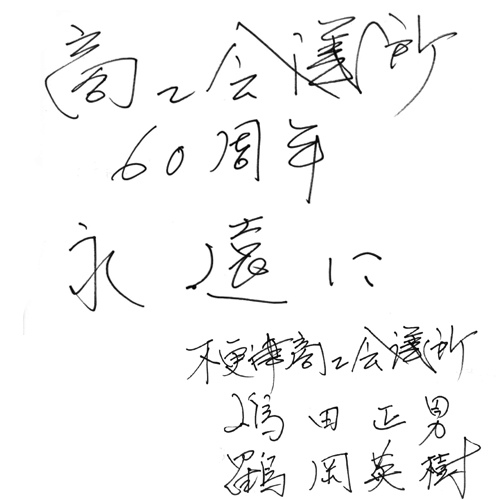 商工会議所
60周年
永遠に
木更津商工会議所
鴇田正男
鶴岡英樹